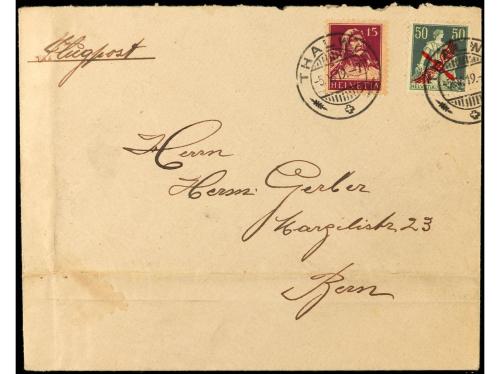 Flugpost
15
HELVETIA
50 50
THAL
Herrn
Herm. Gerber
Marzilistr. 23
Bern